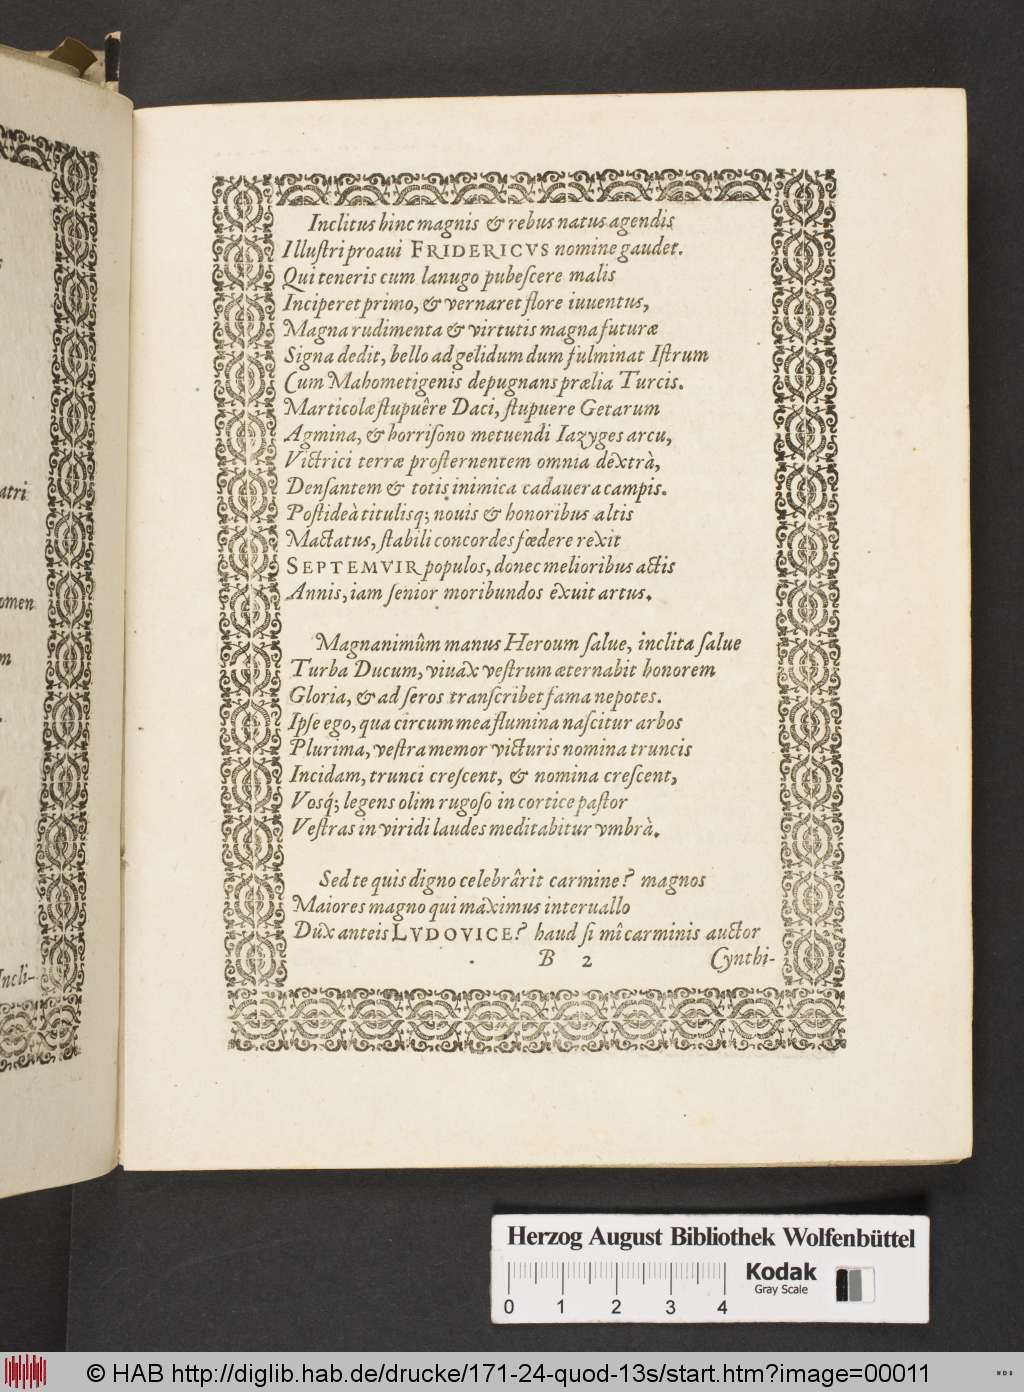 atri
omen
m
Incli-
Inclitus hinc magnis & rebus natus agendis
Illuſtri proaui FRIDERICVS nomine gaudet.
Qui teneris cum lanugo pubeſcere malis
Inciperet primo, & vernaret flore iuuentus,
Magna rudimenta & virtutis magna futuræ
Signa dedit, bello ad gelidum dum fulminat Iſtrum
Cum Mahometigenis depugnans prælia Turcis.
Marticolæ ſtupuêre Daci, ſtupuere Getarum
Agmina, & horriſono metuendi Iazyges arcu,
Victrici terræ proſternentem omnia dextrà,
Denſantem & totis inimica cadauera campis.
Poſtideà titulisq; nouis & honoribus altis
Mactatus, ſtabili concordes fœdere rexit
SEPTEMVIR populos, donec melioribus actis
Annis, iam ſenior moribundos êxuit artus.
Magnanimûm manus Heroum ſalue, inclita ſalue
Turba Ducum, viuáx veſtrum æternabit honorem
Gloria, & ad ſeros tranſcribet fama nepotes.
Ipſe ego, qua circum mea flumina naſcitur arbos
Plurima, veſtra memor victuris nomina truncis
Incidam, trunci creſcent, & nomina creſcent,
Vosq́; legens olim rugoſo in cortice paſtor
Veſtras in viridi laudes meditabitur vmbrà.
Sed te quis digno celebrârit carmine? magnos
Maiores magno qui máximus interuallo
Dúx anteis LVDOVICE? haud ſi mî carminis auctor
B 2 Cynthi-
Herzog August Bibliothek Wolfenbüttel
Kodak
Gray Scale
0 1 2 3 4
© HAB http://diglib.hab.de/drucke/171-24-quod-13s/start.htm?image=00011